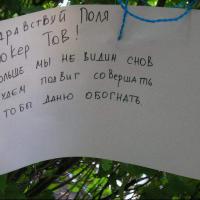 ДРАВСТВУЙ ПОЛЯ
ОКЕР ТОВ!
ОЛЬШЕ МЫ НЕ ВИДИМ СНОВ
УДЕМ ПОДВИГ СОВЕРШАТЬ
ТОБЫ ДАНЮ ОБОГНАТЬ.